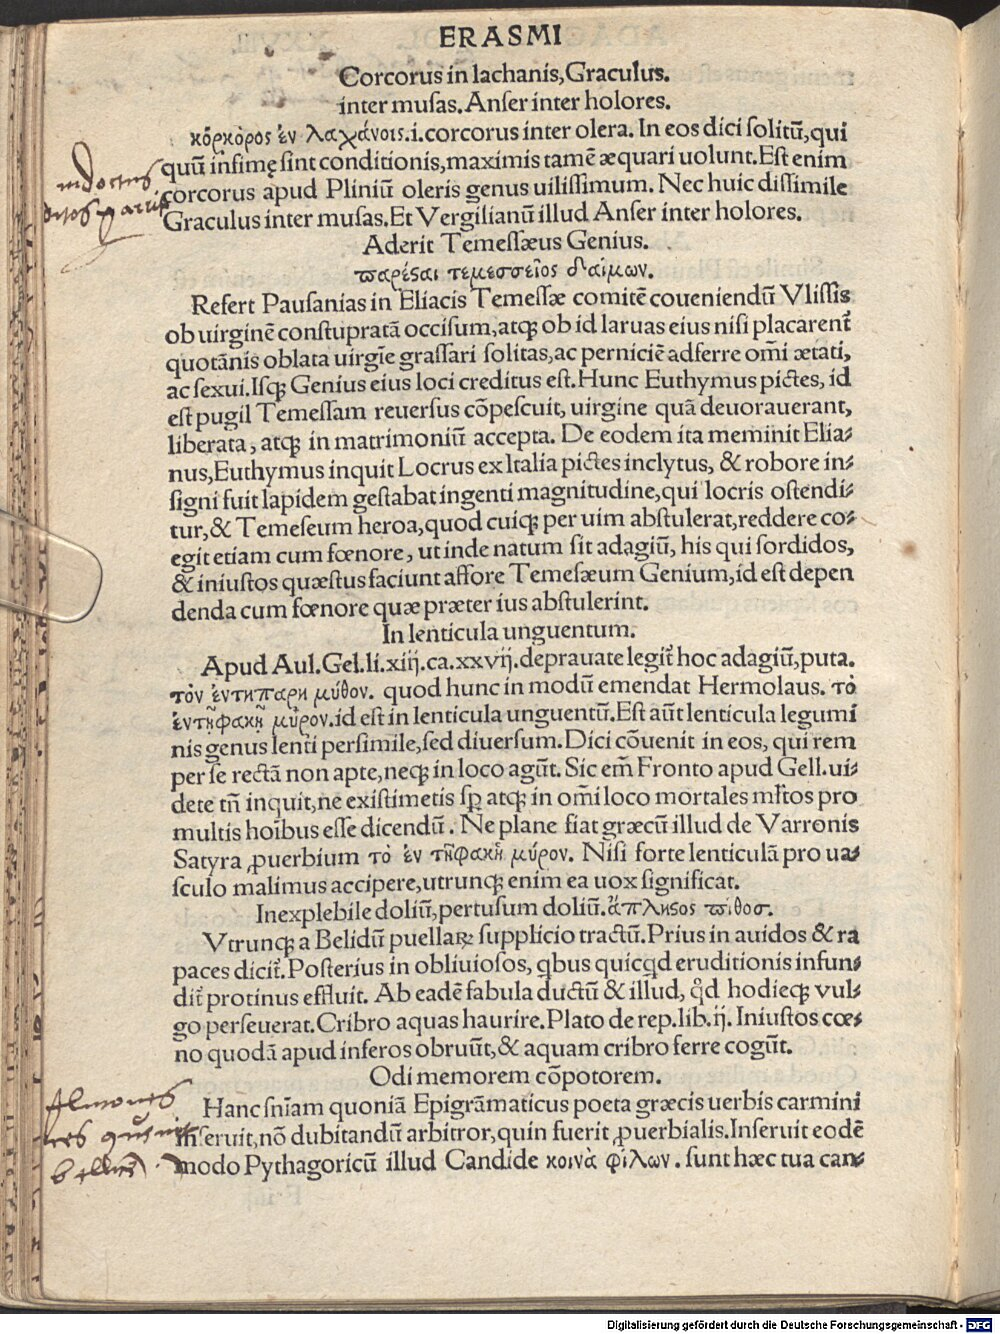 ERASMI
Corcorus in lachanis, Graculus.
inter musas. Anser inter holores.
κόρκορος ἐν λαχάνοις. i. corcorus inter olera. In eos dici solitū, qui
quū infimę sint conditionis, maximis tamē æquari uolunt. Est enim
corcorus apud Pliniū oleris genus uilissimum. Nec huic dissimile
Graculus inter musas. Et Vergilianū illud Anser inter holores.
Aderit Temessæus Genius.
παρέςαι τεμεσσεῖος δαίμων.
Refert Pausanias in Eliacis Temessæ comitē coueniendū Vlissis
ob uirginē constupratā occisum, atq; ob id laruas eius nisi placarent̄
quotānis oblata uirgīe grassari solitas, ac perniciē adferre om̄i ætati,
ac sexui. Isq; Genius eius loci creditus est. Hunc Euthymus pictes, id
est pugil Temessam reuersus cōpescuit, uirgine quā deuorauerant,
liberata, atq; in matrimoniū accepta. De eodem ita meminit Elia⸗
nus, Euthymus inquit Locrus ex Italia pictes inclytus, & robore in⸗
signi fuit lapidem gestabat ingenti magnitudine, qui locris ostendi⸗
tur, & Temeseum heroa, quod cuiq; per uim abstulerat, reddere co⸗
egit etiam cum fœnore, ut inde natum sit adagiū, his qui sordidos,
& iniustos quæstus faciunt affore Temesæum Genium, id est depen
denda cum fœnore quæ præter ius abstulerint.
In lenticula unguentum.
Apud Aul. Gel. li. xiij. ca. xxvij. deprauate legit̄ hoc adagiū, puta.
τὸν ἐντηπαρη μύθον. quod hunc in modū emendat Hermolaus. τὸ
ἐντῆφακῆ μῦρον. id est in lenticula unguentū. Est aūt lenticula legumi
nis genus lenti persimile, sed diuersum. Dici cōuenit in eos, qui rem
per se rectā non apte, neq; in loco agūt. Sic em̄ Fronto apud Gell. ui⸗
dete tn̄ inquit, ne existimetis sꝑ atq; in om̄i loco mortales ml̄tos pro
multis hoībus esse dicendū. Ne plane fiat græcū illud de Varronis
Satyra ꝓuerbium τὸ ἐν τῆφακῆ μύρον. Nisi forte lenticulā pro ua⸗
sculo malimus accipere, utrunq; enim ea uox significat.
Inexplebile doliū, pertusum doliū. ἄπληςος πίθοσ.
Vtrunq; a Belidū puellaꝝ supplicio tractū. Prius in auidos & ra
paces dicit̄. Posterius in obliuiosos, qbus quicqd eruditionis infun⸗
dit̄ protinus effluit. Ab eadē fabula ductū & illud, qd̄ hodieq; vul⸗
go perseuerat. Cribro aquas haurire. Plato de rep. lib. ij. Iniustos cœ⸗
no quodā apud inferos obruūt, & aquam cribro ferre cogūt.
Odi memorem cōpotorem.
Hanc sn̄iam quoniā Epigrāmaticus poeta græcis uerbis carmini
inseruit, nō dubitandū arbitror, quin fuerit ꝓuerbialis. Inseruit eodē
modo Pythagoricū illud Candide κοινὰ φίλων. sunt hæc tua can⸗
Digitalisierung gefördert durch die Deutsche Forschungsgemeinschaft - DFG